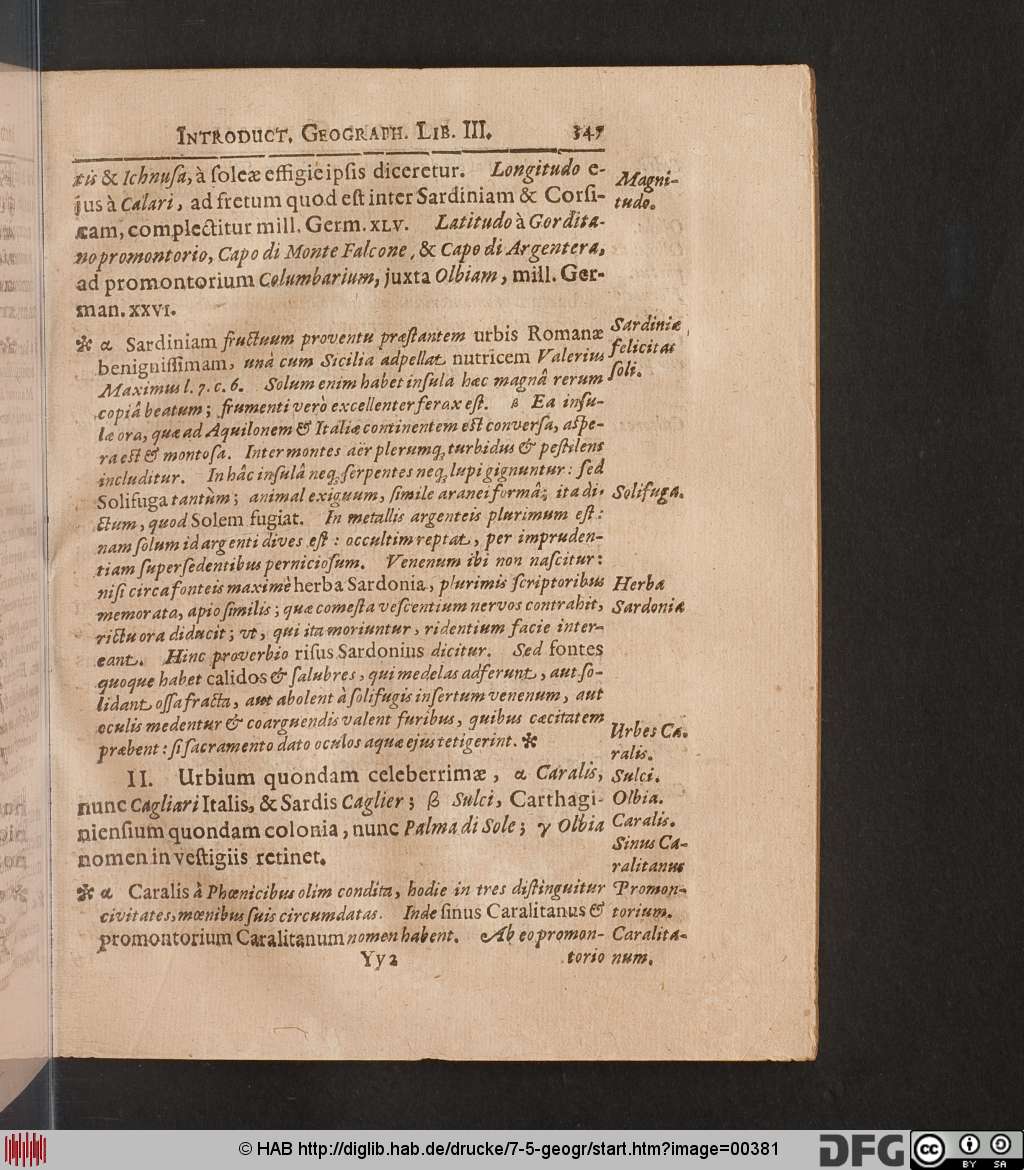 INTRODUCT. GEOGRAPH. LIB. III. 347
tis & Ichnuſa, à ſoleæ effigie ipſis diceretur. Longitudo e-
jus à Calari, ad fretum quod eſt inter Sardiniam & Corſi-
cam, complectitur mill. Germ. XLV. Latitudo à Gordita-
no promontorio, Capo di Monte Falcone, & Capo di Argentera,
ad promontorium Columbarium, juxta Olbiam, mill. Ger-
man. XXVI.
Magni-
tudo.
✼ α Sardiniam fructuum proventu præſtantem urbis Romanæ
benigniſſimam, unà cum Sicilia adpellat nutricem Valerius
Maximus l. 7. c. 6. Solum enim habet inſula hæc magnâ rerum
copiâ beatum; frumenti verò excellenter ferax eſt. β Ea inſu-
læ ora, quæ ad Aquilonem & Italiæ continentem eſt converſa, aſpe-
ra eſt & montoſa. Inter montes aër plerumq; turbidus & peſtilens
includitur. In hâc inſulâ neq; ſerpentes neq; lupi gignuntur: ſed
Solifuga tantùm; animal exiguum, ſimile aranei formâ; ita di-
ctum, quod Solem fugiat. In metallis argenteis plurimum eſt:
nam ſolum id argenti dives eſt: occultim reptat, per impruden-
tiam ſuperſedentibus pernicioſum. Venenum ibi non naſcitur:
niſi circa fonteis maximè herba Sardonia, plurimis ſcriptoribus
memorata, apio ſimilis; quæ comeſta veſcentium nervos contrahit,
rictu ora diducit; vt, qui ita moriuntur, ridentium facie inter-
eant. Hinc proverbio riſus Sardonius dicitur. Sed fontes
quoque habet calidos & ſalubres, qui medelas adferunt, aut ſo-
lidant oſſa fracta, aut abolent à ſolifugis inſertum venenum, aut
oculis medentur & coarguendis valent furibus, quibus cæcitatem
præbent: ſi ſacramento dato oculos aquæ ejus tetigerint. ✼
Sardiniæ
felicitas
ſoli.
Solifuga.
Herba
Sardonia
II. Urbium quondam celeberrimæ, α Caralis,
nunc Cagliari Italis, & Sardis Caglier; β Sulci, Carthagi-
nienſium quondam colonia, nunc Palma di Sole; γ Olbia
nomen in veſtigiis retinet.
Urbes Ca-
ralis.
Sulci.
Olbia.
Caralis.
✼ α Caralis à Phœnicibus olim condita, hodie in tres diſtinguitur
civitates, mœnibus ſuis circumdatas. Inde ſinus Caralitanus &
promontorium Caralitanum nomen habent. Ab eo promon-
Sinus Ca-
ralitanus
Promon-
torium.
Caralita-
num.
Yy 2 torio
© HAB http://diglib.hab.de/drucke/7-5-geogr/start.htm?image=00381
DFG
cc
BY SA